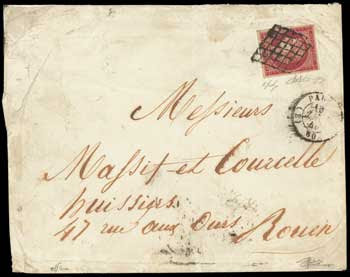 Messieurs
Massif et Courcelle
huissiers
47 rue aux Ours Rouen
PA
(60)